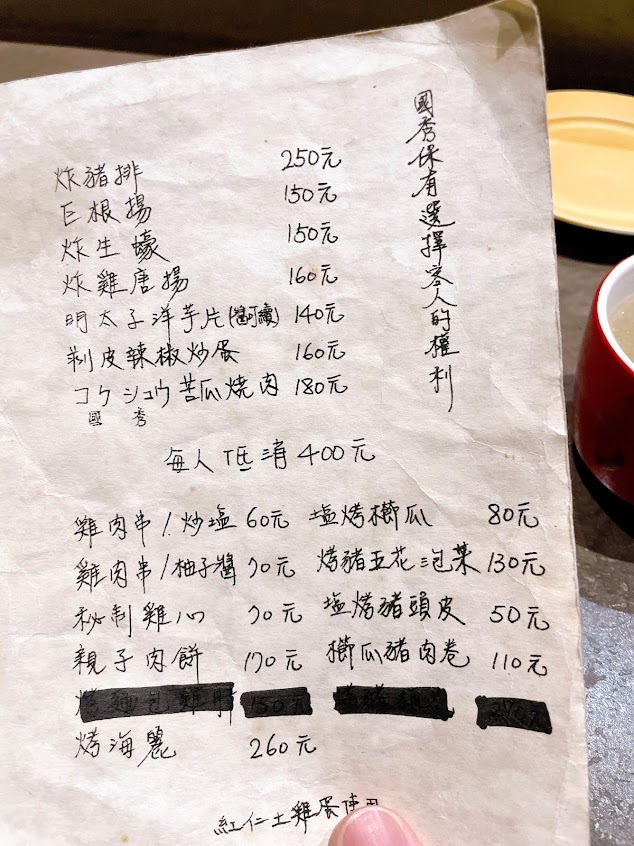 國秀保有選擇客人的權利
炸豬排 250元
巨根揚 150元
炸生蠔 150元
炸雞唐揚 160元
明太子洋芋片(醬可續) 140元
剥皮辣椒炒蛋 160元
コクシュウ苦瓜燒肉 180元
國 秀
每人低消400元
雞肉串/炒塩 60元 塩烤櫛瓜 80元
雞肉串/柚子醬 70元 烤豬五花三包菜 130元
秘制雞心 70元 塩烤豬頭皮 50元
親子肉餅 170元 櫛瓜豬肉卷 110元
烤海麗 260元
紅仁土雞蛋使用